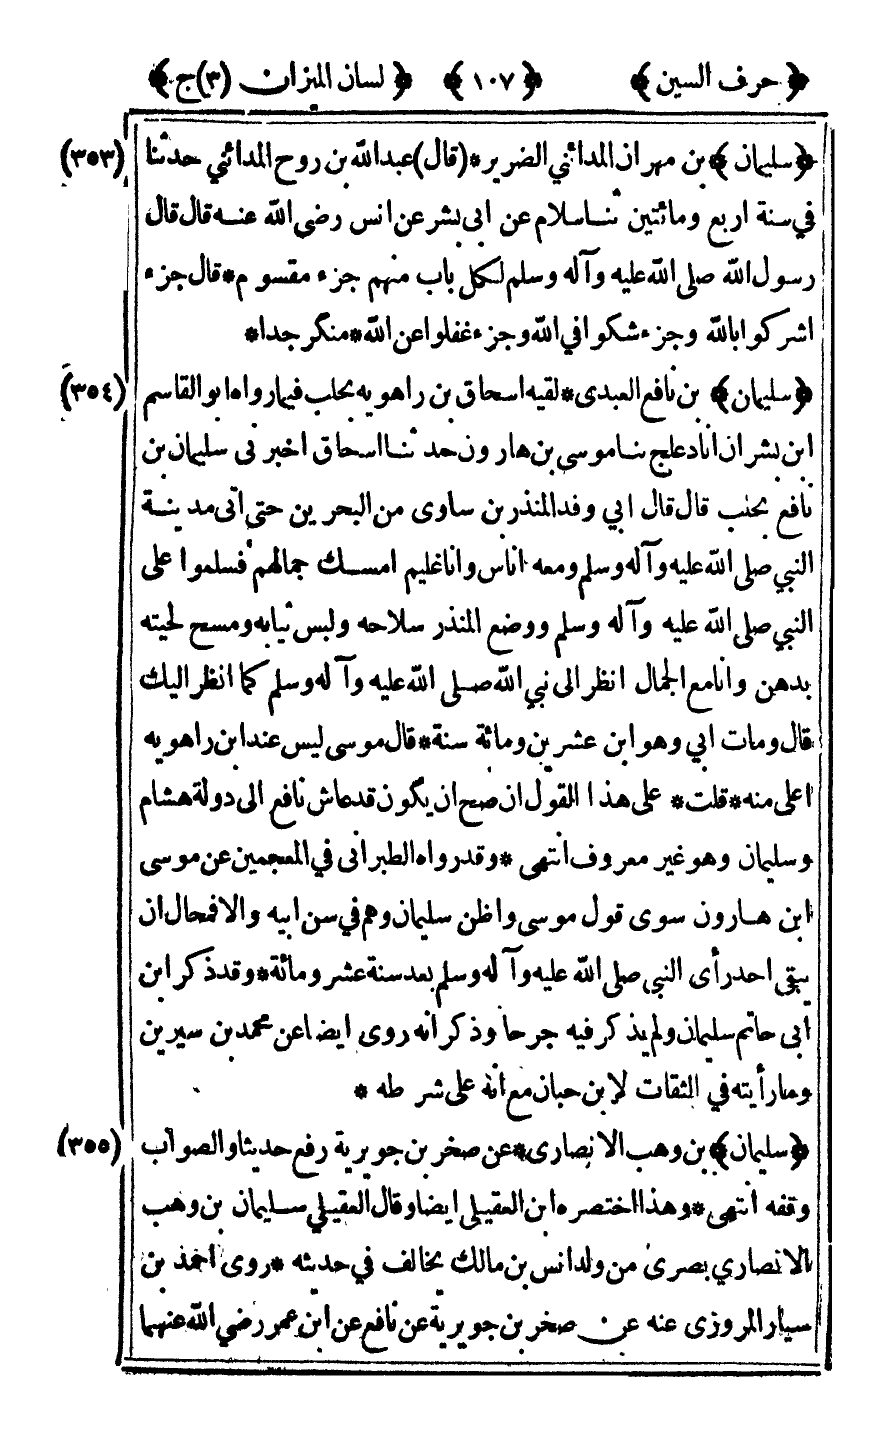 ﴿ حرف السين ﴾ ﴿ ١٠٧ ﴾ ﴿ لسان الميزان (٣) ج ﴾
﴿ سليمان ﴾ بن مهران المدائني الضرير * (قال) عبد الله بن روح المدائني حدثنا (٣٥٣)
في سنة اربع ومائتين ثنا سلام عن ابى بشر عن انس رضي الله عنه قال قال
رسول الله صلى الله عليه وآله وسلم لكل باب منهم جزء مقسوم * قال جزء
اشركوا بالله وجزء شكوا في الله وجزء غفلوا عن الله * منكر جدا *
﴿ سليمان ﴾ بن نافع العبدى * لقيه اسحاق بن راهويه بحلب فيما رواه ابو القاسم (٣٥٤)
ابن بشران انا دعلج ثنا موسى بن هارون حدثنا اسحاق اخبرنى سليمان بن
نافع بحلب قال قال ابي وفد المنذر بن ساوى من البحرين حتى اتى مدينة
النبي صلى الله عليه وآله وسلم ومعه اناس وانا غليم امسك جمالهم فسلموا على
النبي صلى الله عليه وآله وسلم ووضع المنذر سلاحه ولبس ثيابه ومسح لحيته
بدهن وانا مع الجمال انظر الى نبي الله صلى الله عليه وآله وسلم كما انظر اليك
قال ومات ابي وهو ابن عشرين ومائة سنة * قال موسى ليس عند ابن راهويه
اعلى منه * قلت * على هذا القول ان صح ان يكون قد عاش نافع الى دولة هشام
وسليمان وهو غير معروف انتهى * وقد رواه الطبرانى في المعجمين عن موسى
ابن هارون سوى قول موسى واظن سليمان وهم في سن ابيه والا فمحال ان
يبقى احد رأى النبى صلى الله عليه وآله وسلم بعد سنة عشر ومائة * وقد ذكر ابن
ابى حاتم سليمان ولم يذكر فيه جرحا وذكر انه روى ايضا عن محمد بن سيرين
وما رأيته في الثقات لابن حبان مع انه على شرطه *
﴿ سليمان ﴾ بن وهب الانصارى * عن صخر بن جويرية رفع حديثا والصواب (٣٥٥)
وقفه انتهى * وهذا اختصره ابن العقيلى ايضا وقال العقيلي سليمان بن وهب
الانصاري بصرى من ولد انس بن مالك يخالف في حديثه * روى احمد بن
سيار المروزى عنه عن صخر بن جويرية عن نافع عن ابن عمر رضي الله عنهما